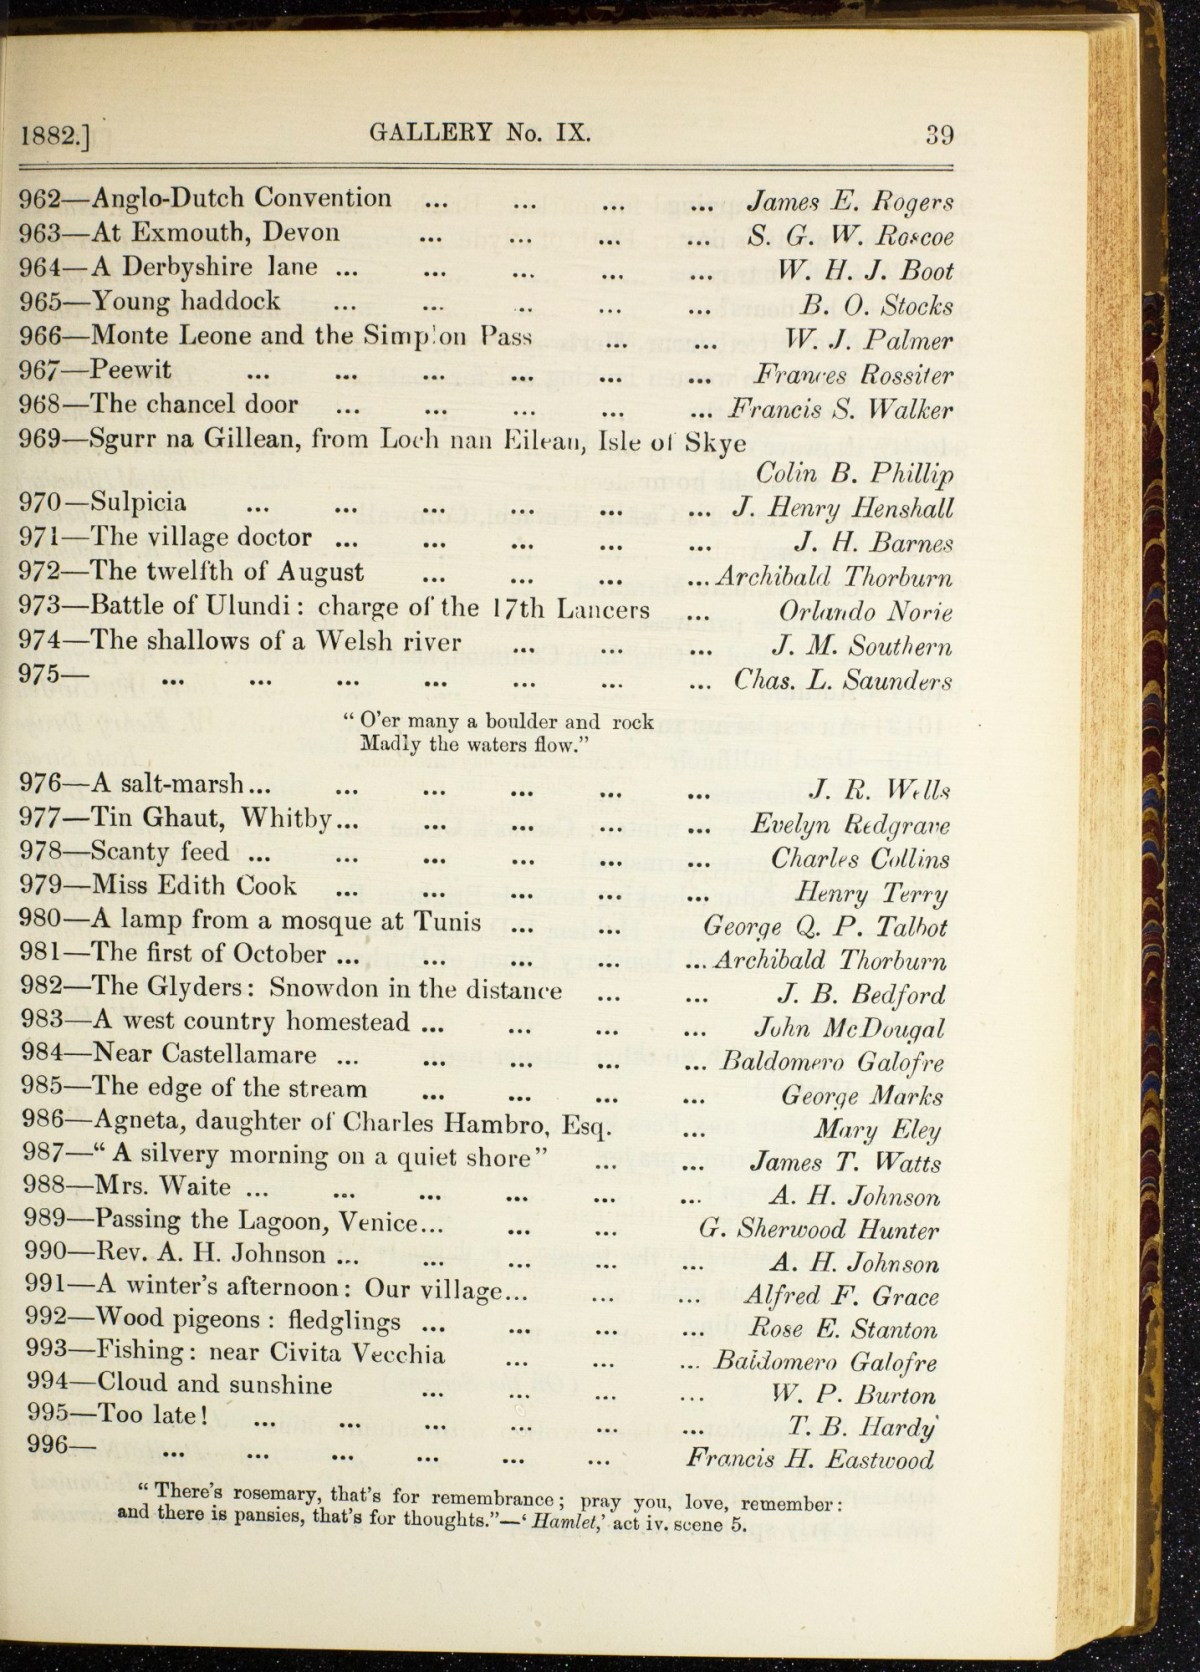 1882.] GALLERY No. IX. 39
962—Anglo-Dutch Convention ... ... ... ... James E. Rogers
963—At Exmouth, Devon ... ... ... ... S. G. W. Roscoe
964—A Derbyshire lane ... ... ... ... ... W. H. J. Boot
965—Young haddock ... ... ... ... ... B. O. Stocks
966—Monte Leone and the Simplon Pass ... ... W. J. Palmer
967—Peewit ... ... ... ... ... ... Frances Rossiter
968—The chancel door ... ... ... ... ... Francis S. Walker
969—Sgurr na Gillean, from Loch nan Eilean, Isle of Skye
Colin B. Phillip
970—Sulpicia ... ... ... ... ... ... J. Henry Henshall
971—The village doctor ... ... ... ... ... J. H. Barnes
972—The twelfth of August ... ... ... ... Archibald Thorburn
973—Battle of Ulundi: charge of the 17th Lancers ... Orlando Norie
974—The shallows of a Welsh river ... ... ... J. M. Southern
975— ... ... ... ... ... ... ... Chas. L. Saunders
“ O’er many a boulder and rock
Madly the waters flow.”
976—A salt-marsh... ... ... ... ... ... J. R. Wells
977—Tin Ghaut, Whitby... ... ... ... ... Evelyn Redgrave
978—Scanty feed ... ... ... ... ... ... Charles Collins
979—Miss Edith Cook ... ... ... ... ... Henry Terry
980—A lamp from a mosque at Tunis ... ... George Q. P. Talbot
981—The first of October ... ... ... ... ... Archibald Thorburn
982—The Glyders: Snowdon in the distance ... ... J. B. Bedford
983—A west country homestead ... ... ... ... John McDougal
984—Near Castellamare ... ... ... ... ... Baldomero Galofre
985—The edge of the stream ... ... ... ... George Marks
986—Agneta, daughter of Charles Hambro, Esq. ... Mary Eley
987—“ A silvery morning on a quiet shore” ... ... James T. Watts
988—Mrs. Waite ... ... ... ... ... ... A. H. Johnson
989—Passing the Lagoon, Venice... ... ... G. Sherwood Hunter
990—Rev. A. H. Johnson ... ... ... ... ... A. H. Johnson
991—A winter’s afternoon: Our village... ... ... Alfred F. Grace
992—Wood pigeons : fledglings ... ... ... ... Rose E. Stanton
993—Fishing: near Civita Vecchia ... ... ... Baldomero Galofre
994—Cloud and sunshine ... ... ... ... W. P. Burton
995—Too late! ... ... ... ... ... ... T. B. Hardy
996— ... ... ... ... ... ... Francis H. Eastwood
“ There’s rosemary, that’s for remembrance; pray you, love, remember:
and there is pansies, that’s for thoughts.”—‘ Hamlet,’ act iv. scene 5.